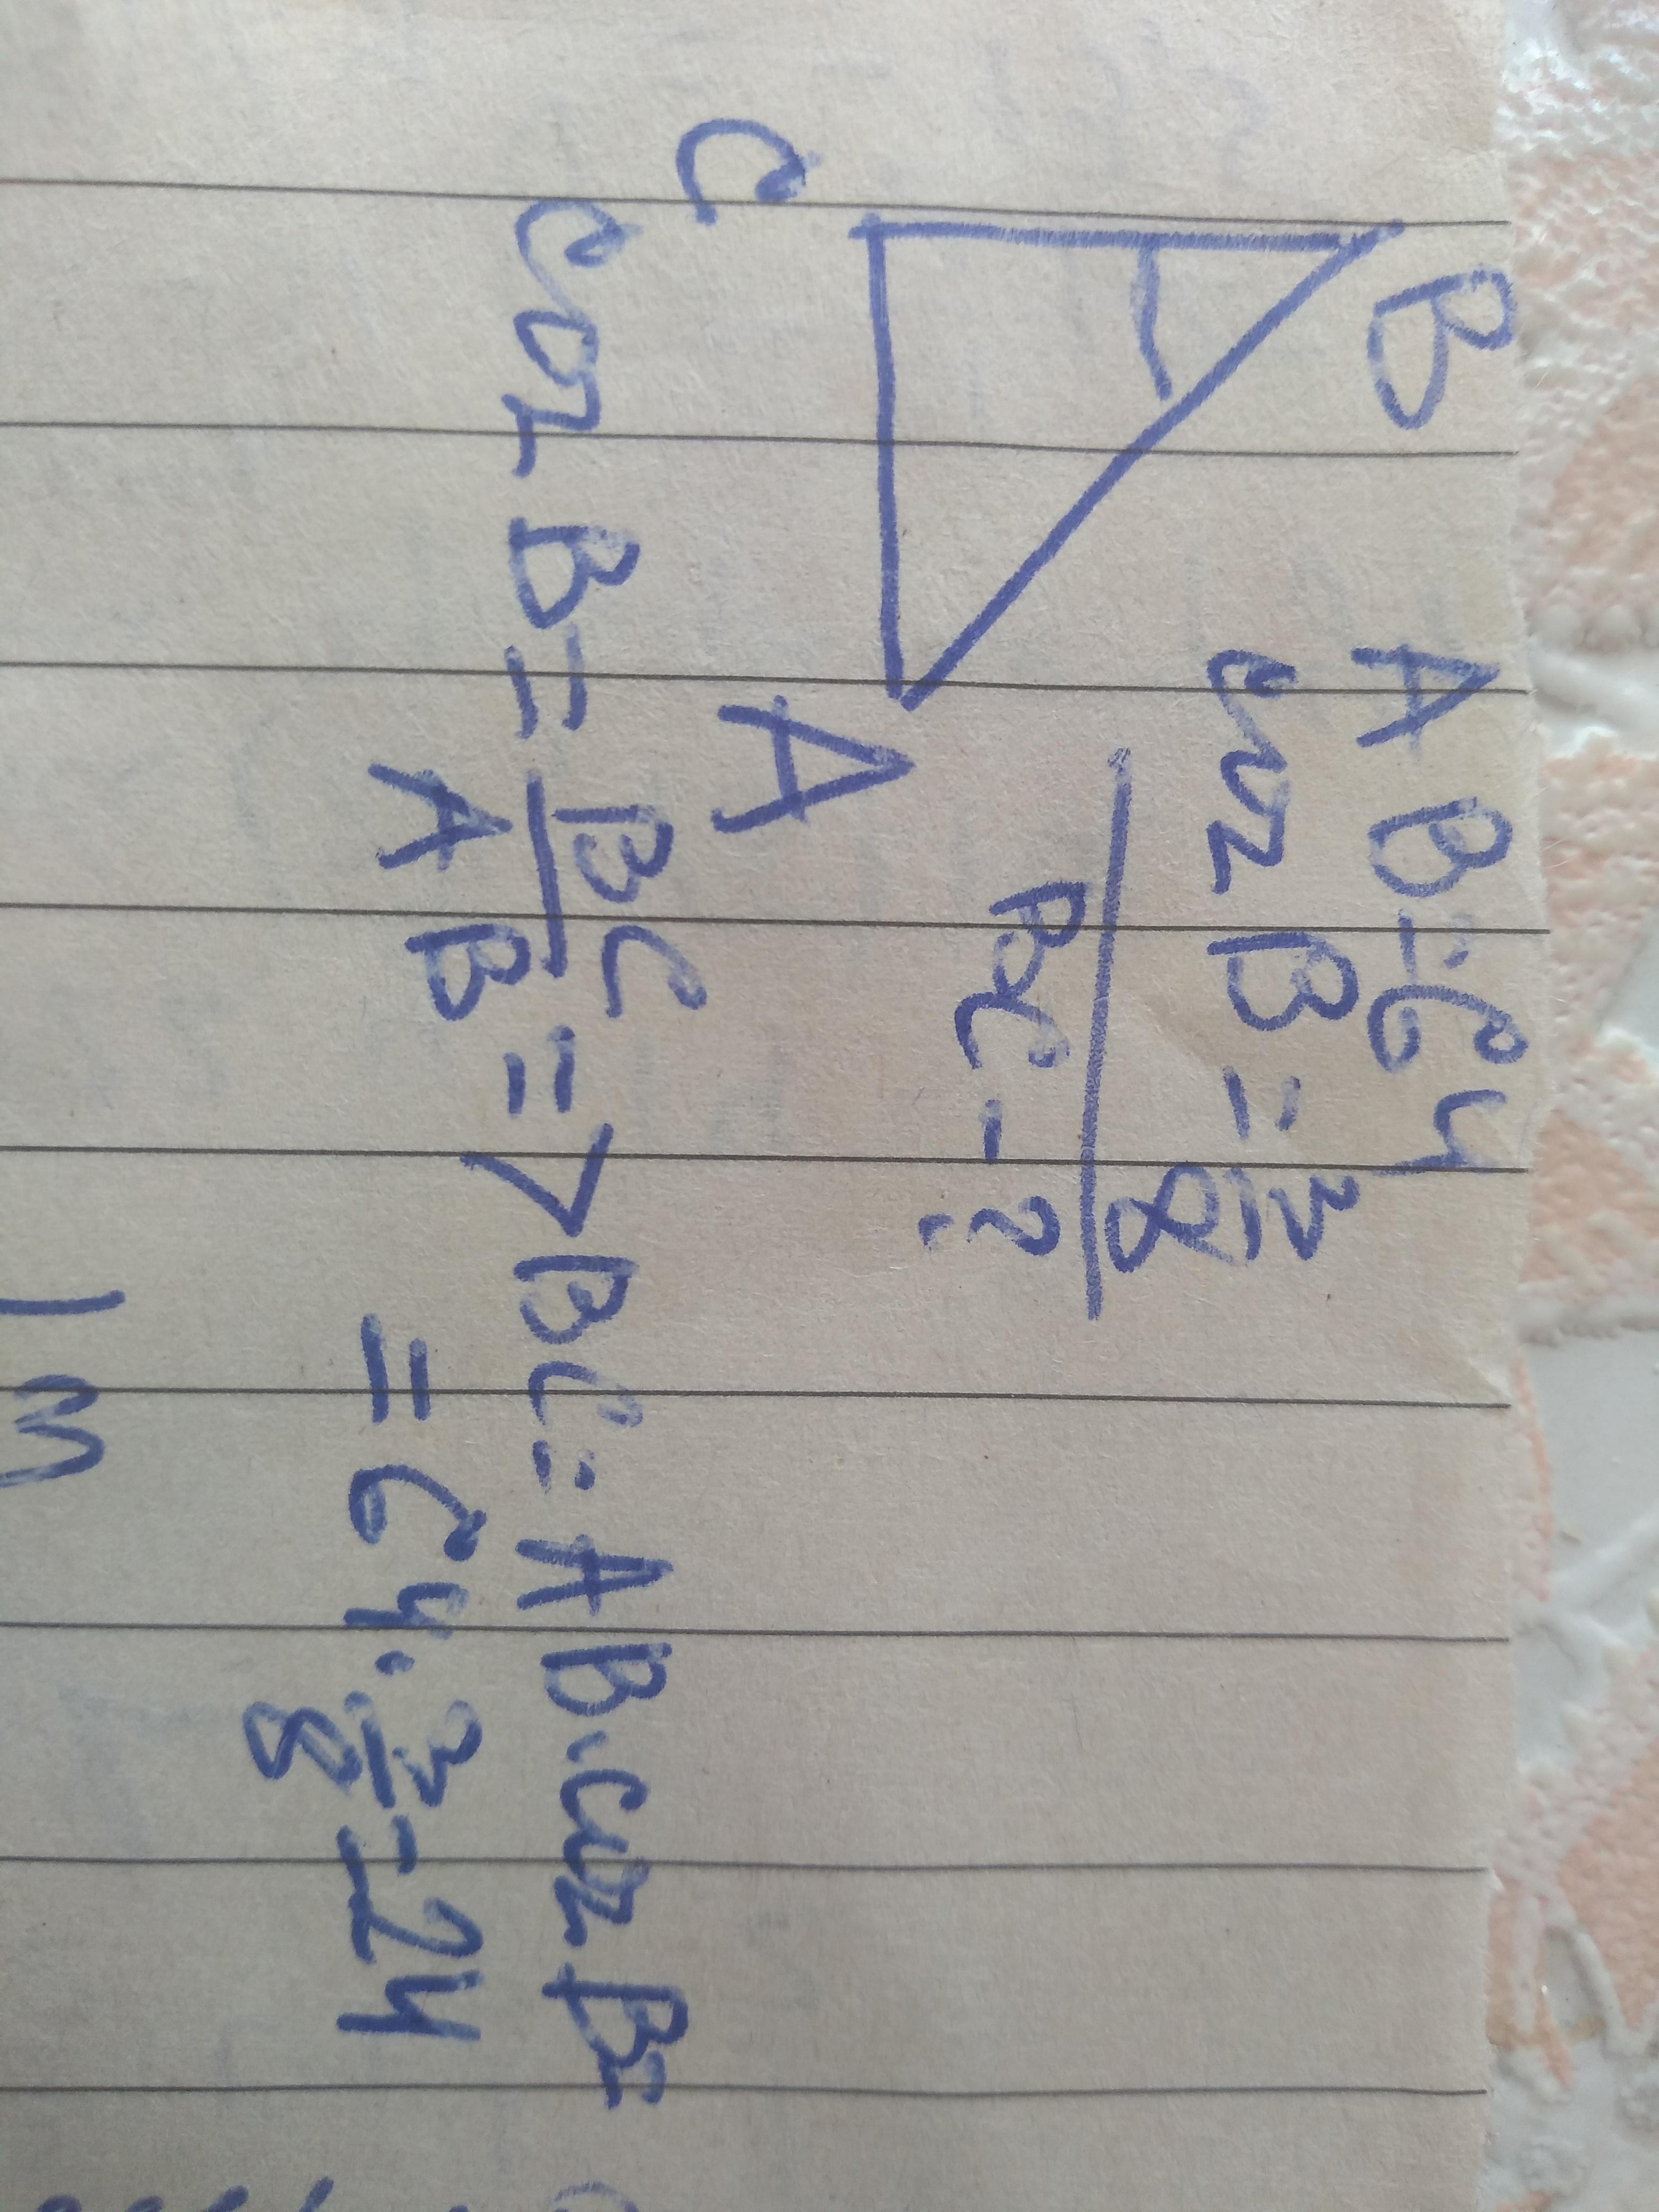 B
AB=64
cos B=3/8
BC-?
C
A
cos B=BC/AB=>BC=AB·cos B=
=64·3/8=24